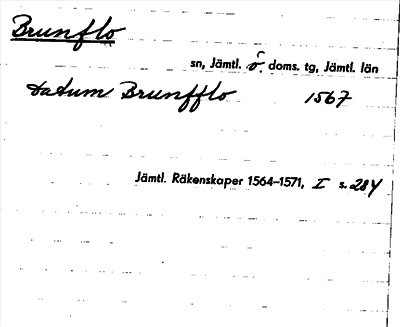 Brunflo
sn, Jämtl. ö. doms. tg, Jämtl. län
Datum Brunfflo 1567
Jämtl. Räkenskaper 1564–1571, I s. 284